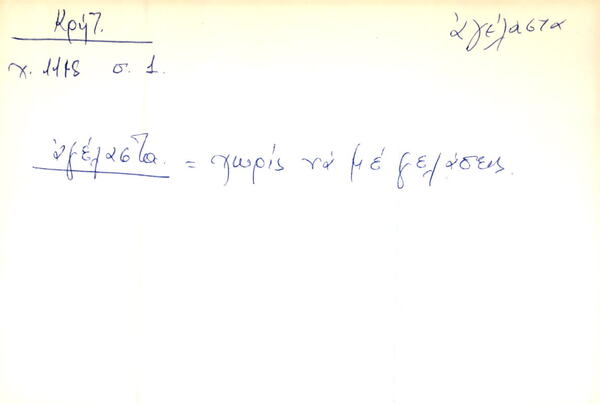 Κρήτ.
ἀγέλαστα
χ. 1118 σ. 1.
ἀγέλαστα = χωρίς νά μέ γελάσεις.